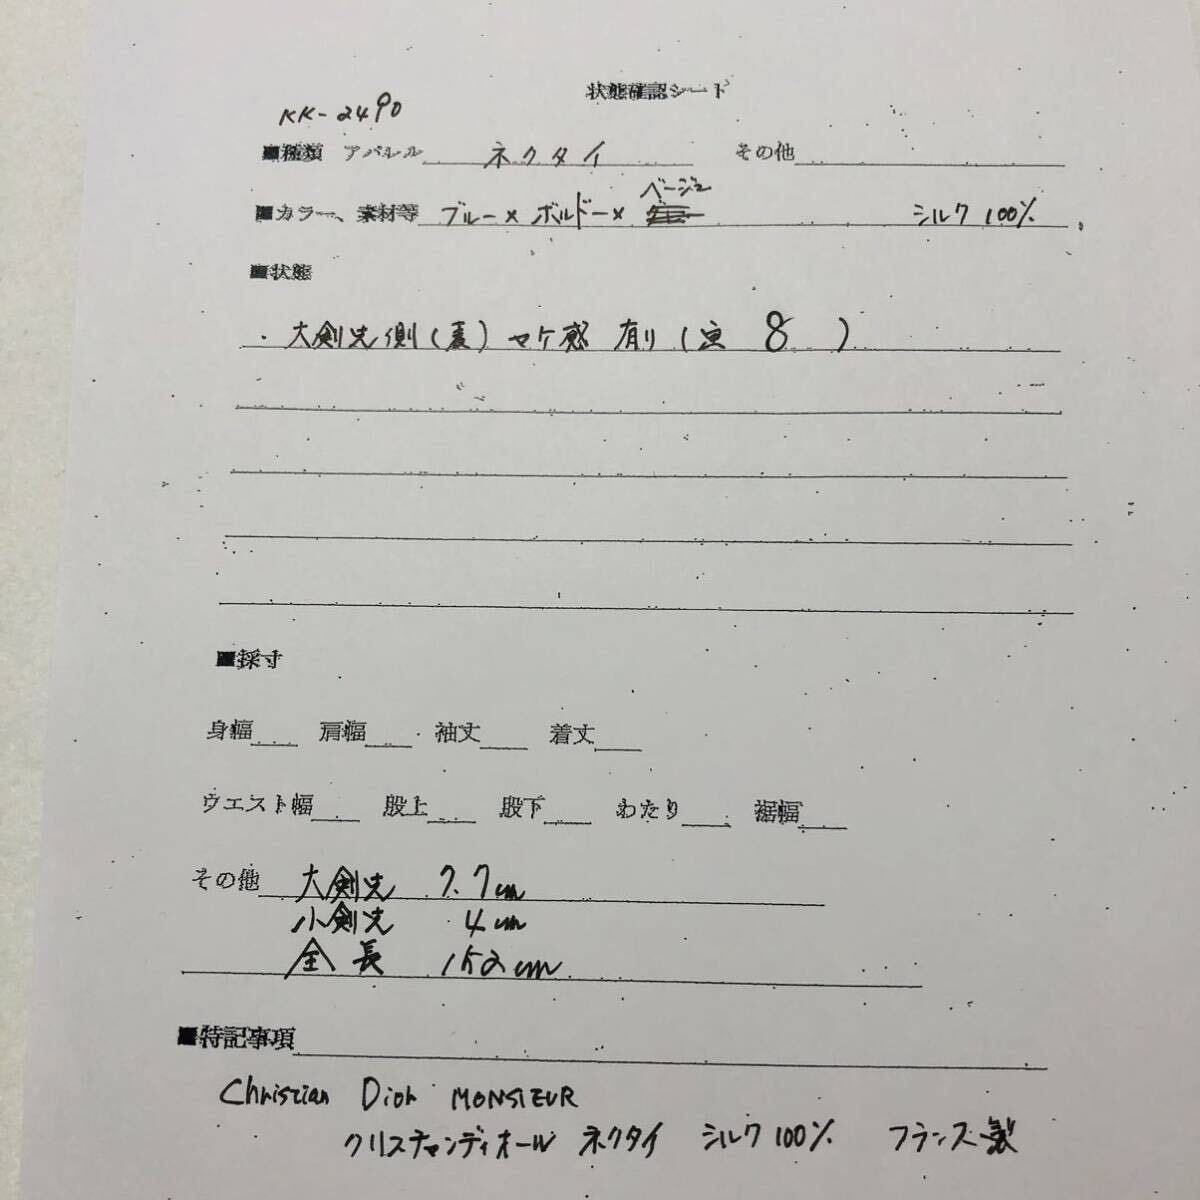 状態確認シート
KK-2490
■種類 アパレル ネクタイ その他
■カラー、素材等 ブルー×ボルドー×ベージュ シルク100%
■状態
・大剣先側(裏)ヤケ感 有り( 8 )
■採寸
身幅 肩幅 袖丈 着丈
ウエスト幅 股上 股下 わたり 裾幅
その他 大剣先 7.7cm
小剣先 4cm
全長 152cm
■特記事項
Christian Dior MONSIEUR
クリスチャンディオール ネクタイ シルク100% フランス製